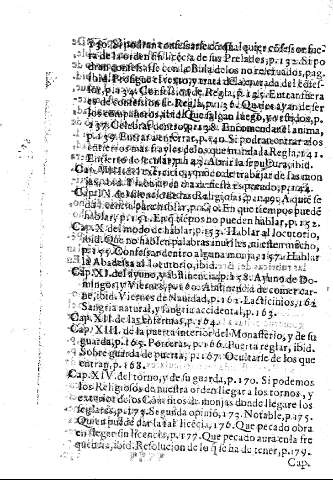 130. Si podran confesarse con qualquier cõfesor fue-
ra de la orden sin licēcia de sus Prelados, p. 132. Si po
dran confesarse con la Bula de los no reseruados, pag.
ibid. Prosigue el
sor, p. 134. Confes de Regla, p. 135. Entran fuera
es de confesion de Regla, p. 136. de ser
los compañeros, ibid. Que salgan luego, y vestidos, p.
137. Celebrar dentro, p. 138. Encomendar el anima,
p. 139. Entrar a enforrar, p. 40. Si podran entrar a los
entierros mas frayles de los que manda la Regla, 141.
Entierro de seculares, 143. Abrir la sepultura, ibid.
Cap. exercicio, y modo de trabajar de las mon
jas, ibid. p. 144.
Cap. IX. del silẽcio de las Religiosas, p. 149. A quiẽ se
da licencia para hablar, p. 150. En que tiempos puedẽ
hablar, p. 151. En q̃ lugares no pueden hablar, p. 152.
Cap. X. del modo de hablar, p. 153. Hablar al locutorio,
ibid. Que no hablen palabras inutiles, ni esten mucho,
p. 155. Confessar dentro alguna monja, 157. Hablar
la Abadessa al locutorio, ibid.
Cap. XI. del ayuno, y abstinencia, p. 158. Ayuno de Do-
mingos, y Viernes, p. 160. Abstinencia de comer car-
ne, ibid. Viernes de Nauidad, p. 161. Lacticinios, 162
Sangria natural, y sangria accidental, p. 163.
Cap. XII. de las enfermas, p. 164.
Cap. XIII. de la puerta interior del Monasterio, y de su
guarda, p. 165. Porteras, p. 166. Puerta reglar, ibid.
Sobre guarda de puerta, p. 167. Ocultarse de los que
entran, p. 168.
Cap. XIV. del torno, y de su guarda, p. 170. Si podemos
los Religiosos de nuestra orden llegar a los tornos, y
exterior de los Conuẽtos de monjas donde llegare los
seglares, p. 174. Segunda opinió, 175. Notable, 175.
Quien puede dar la tal licẽcia, 176. Que pecado obra
en llegar sin licencia, 177. Que pecado aura en la fre
quencia, ibid. Resolucion de lo q̃ se ha de tener, p. 179.
Cap.